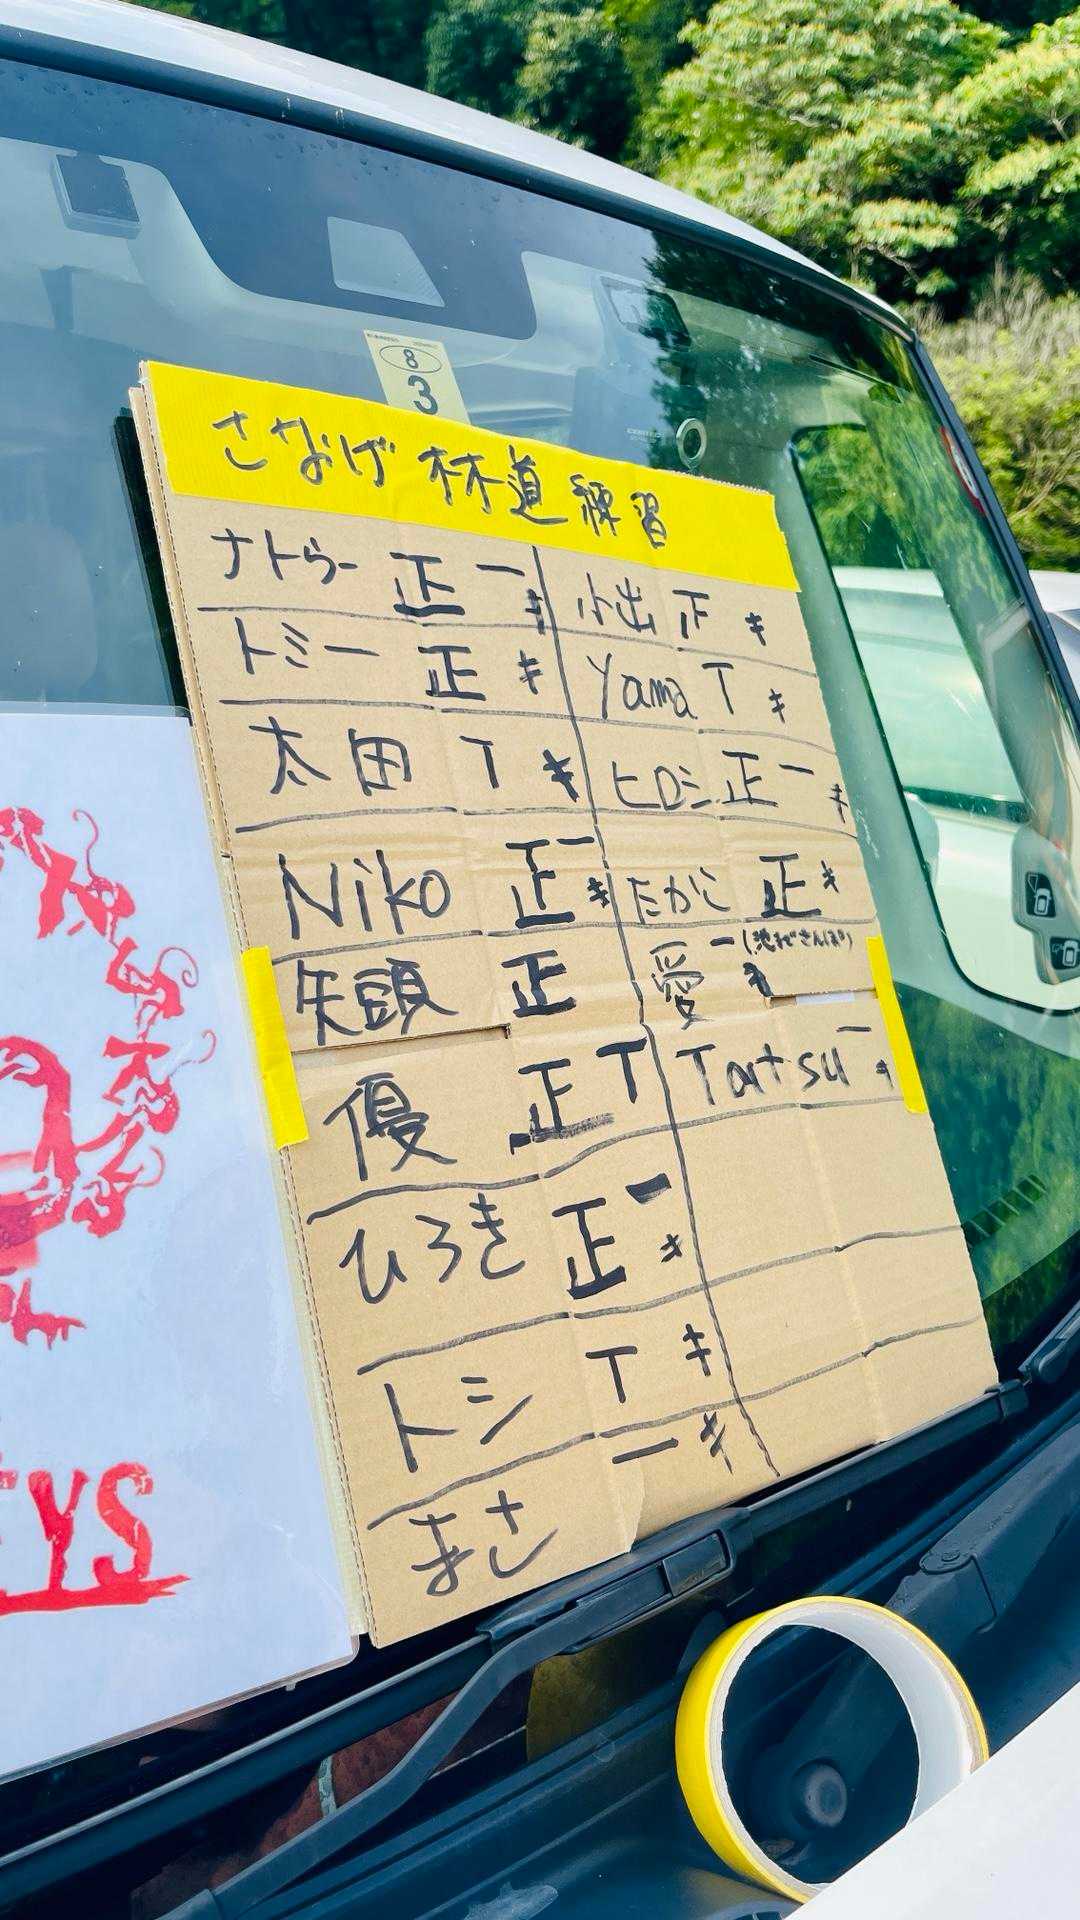 8
3
さなげ林道練習
ナトゥー 正一 キ
トミー 正 キ
太田 T キ
Niko 正一 キ
矢頭 正
優 正T
ひろき 正一 キ
トシ T キ
まさ 一 キ
小出 正 キ
Yama T キ
ヒロシ 正一 キ
たかこ 正 キ
愛 一 キ
Tatsu 一 キ
EYS